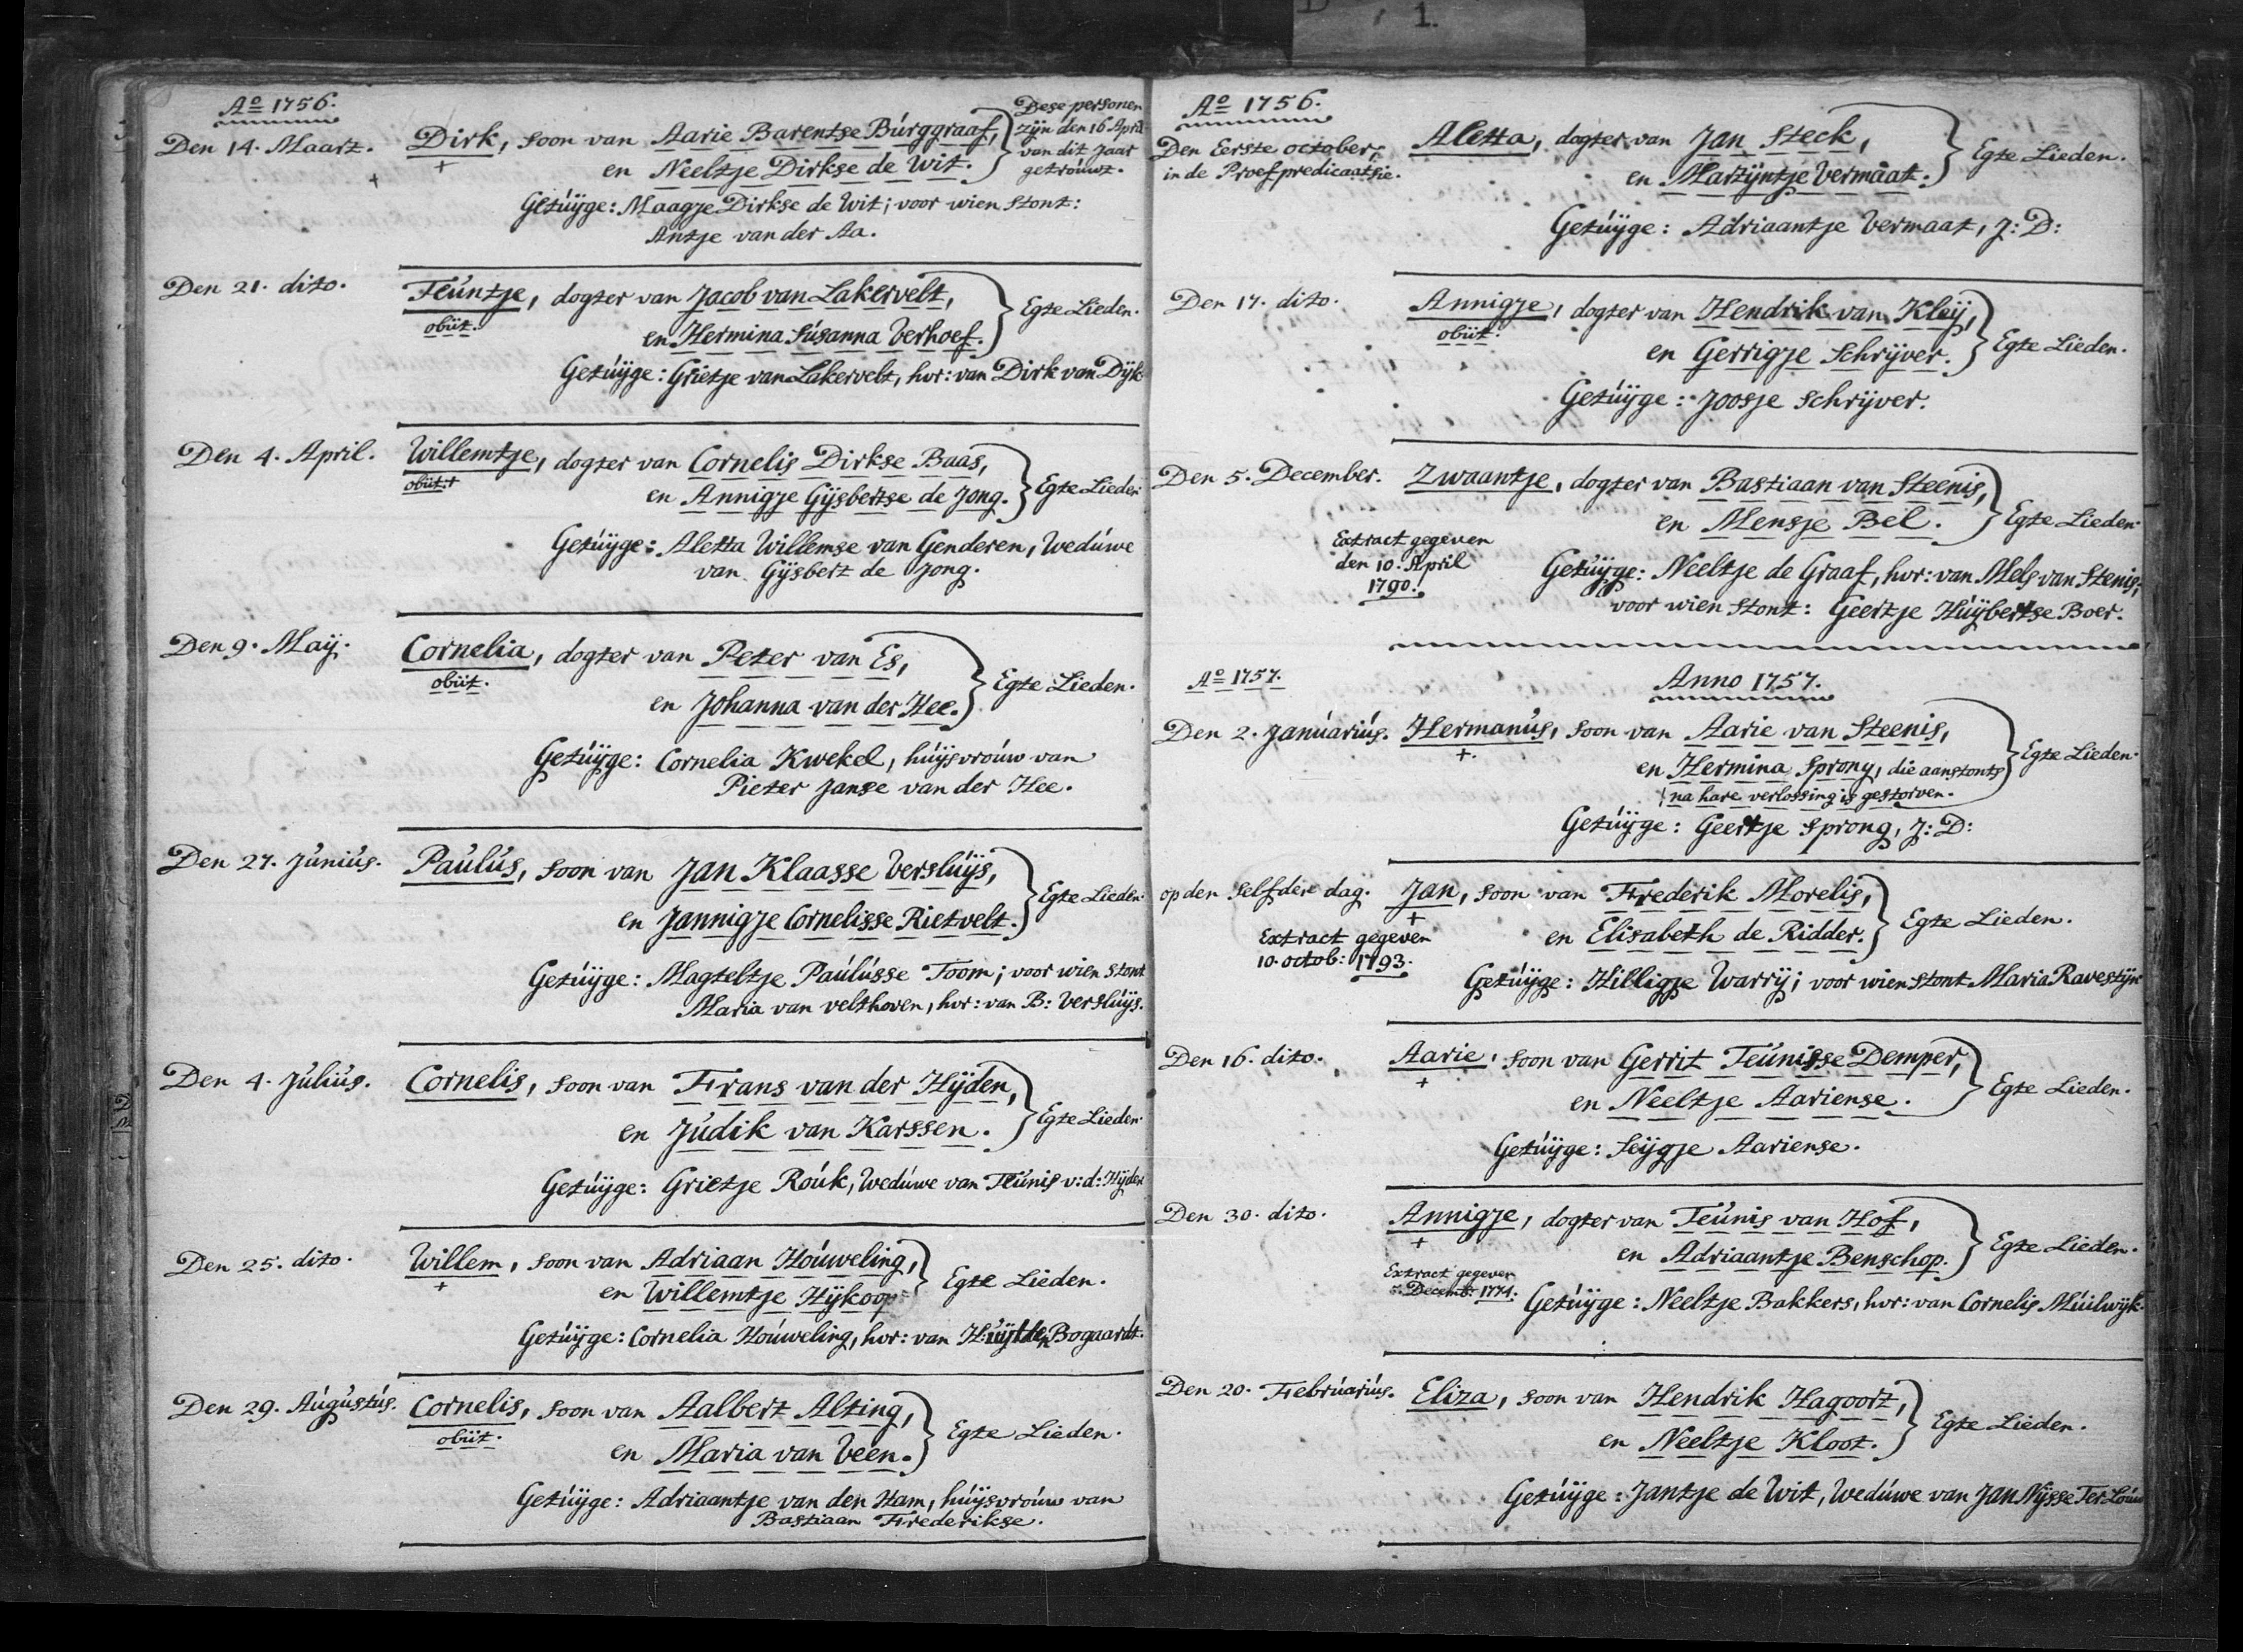 1.
Ao 1756.
Den 14. Maart. Dirk, soon van Aarie Barentse Búrggraaf,
en Neeltje Dirkse de Wit.
Dese personen
zijn den 16 April
van dit Jaar
getroúwt.
Getúÿge: Maagje Dirkse de Wit; voor wien stont:
Antje van der Aa.
Den 21. dito. Teúntje, dogter van Jacob van Lakervelt,
obiit.
en Hermina Súsanna Verhoef.
Egte Lieden.
Getúÿge: Grietje van Lakervelt, hvr: van Dirk van Dÿk
Den 4. April. Willemtje, dogter van Cornelis Dirkse Baas,
obiit. +
en Annigje Gÿsbertse de Jong.
Egte Lieden
Getúÿge: Aletta Willemse van Genderen, Wedúwe
van Gÿsbert de Jong.
Den 9. Maÿ. Cornelia, dogter van Peter van Es,
obiit.
en Johanna van der Hee.
Egte Lieden.
Getúÿge: Cornelia Kwekel, húÿsvroúw van
Pieter Janse van der Hee.
Den 27. Júniús. Paúlús, soon van Jan Klaasse Verslúÿs,
en Jannigje Cornelisse Rietvelt.
Egte Lieden.
Getúÿge: Magteltje Paúlússe Toom; voor wien stont
Maria van velthoven, hvr: van B: Verslúÿs.
Den 4. Júliús. Cornelis, soon van Frans van der Hÿden,
en Júdik van Karssen.
Egte Lieden
Getúÿge: Grietje Roúk, Wedúwe van Teúnis v:d:Hÿden
Den 25. dito. Willem, soon van Adriaan Hoúweling,
+
en Willemtje Hÿkoop
Egte Lieden.
Getúÿge: Cornelia Hoúweling, hvr: van Bogaardt.
Den 29. Aúgústús. Cornelis, soon van Aalbert Alting,
obiit.
en Maria van Veen.
Egte Lieden.
Getúÿge: Adriaantje van den Ham, húÿsvroúw van
Bastiaan Frederikse.
Ao 1756.
Den Eerste october,
in de Proefpredicaatsie.
Aletta, dogter van Jan Steck,
en Martÿntje Vermaat.
Egte Lieden.
Getúÿge: Adriaantje Vermaat, J: D:
Den 17. dito. Annigje, dogter van Hendrik van Kleÿ,
obiit.
en Gerrigje Schrÿver.
Egte Lieden.
Getúÿge: Joosje Schrÿver.
Den 5. December. Zwaantje, dogter van Bastiaan van Steenis,
en Mensje Bel.
Egte Lieden.
Extract gegeven
den 10. April
1790.
Getúÿge: Neeltje de Graaf, hvr: van Mels van Stenis;
voor wien stont: Geertje Húÿbertse Boer.
Ao 1757.
Anno 1757.
Den 2. Janúariús. Hermanús, soon van Aarie van Steenis,
+.
en Hermina Sprong, die aanstonts
na hare verlossing is gestorven.
Egte Lieden.
Getúÿge: Geertje Sprong, J: D:
op den selfden dag. Jan, soon van Frederik Morelis,
+
en Elisabeth de Ridder.
Egte Lieden.
Extract gegeven
10. octob: 1793.
Getúÿge: Hilligje Warrÿ; voor wien stont Maria Ravestÿn
Den 16. dito. Aarie, soon van Gerrit Teúnisse Demper,
+
en Neeltje Aariense.
Egte Lieden.
Getúÿge: Seÿgje Aariense.
Den 30. dito. Annigje, dogter van Teúnis van Hof,
+
en Adriaantje Benschop.
Egte Lieden.
Extract gegeven
Decemb: 1774.
Getúÿge: Neeltje Bakkers, hvr: van Cornelis Múilwÿk.
Den 20. Febrúariús. Eliza, soon van Hendrik Hagoort,
en Neeltje Kloot.
Egte Lieden.
Getúÿge: Jantje de Wit, Wedúwe van Jan Nÿsse Ter Loúw